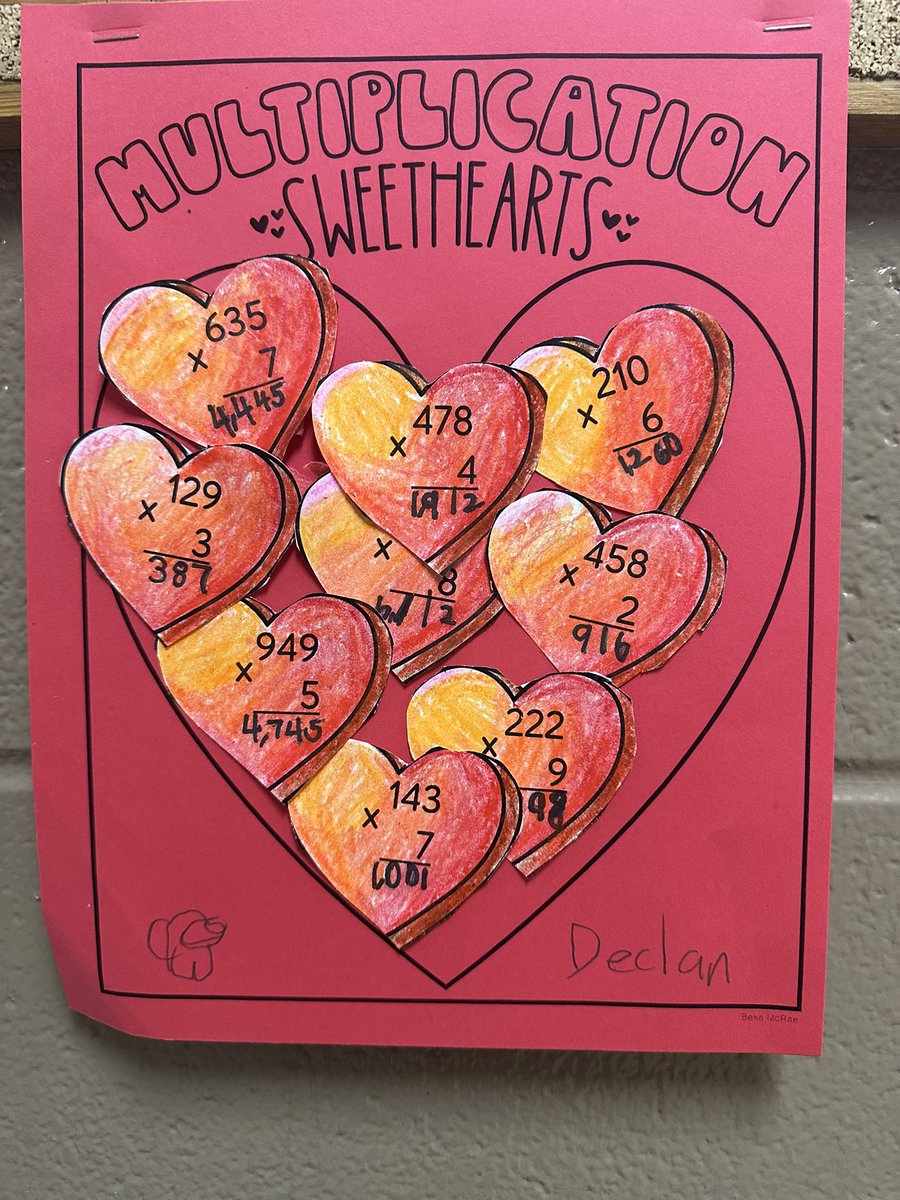 MULTIPLICATION
SWEETHEARTS
635
× 7
4,445
478
× 4
1912
210
× 6
1260
129
× 3
387
×
8
458
× 2
916
949
× 5
4,745
222
× 9
143
× 7
1001
Declan
Beke McRae